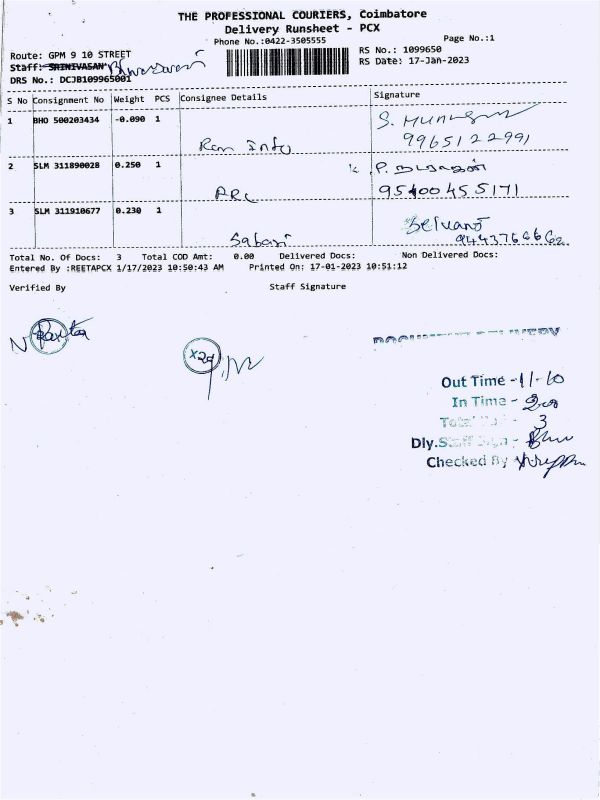 THE PROFESSIONAL COURIERS, Coimbatore
Delivery Runsheet - PCX
Phone No.:0422-3505555
Page No.:1
Route: GPM 9 10 STREET
RS No.: 1099650
Staff: SRINIVASAN
RS Date: 17-Jan-2023
DRS No.: DCJB109965001
S No Consignment No Weight PCS Consignee Details Signature
1 BHO 500203434 -0.090 1
9965122991
2 SLM 311890028 0.250 1 P. நடராஜன்
ARC
3 SLM 311910677 0.230 1
Sabari
Total No. Of Docs: 3 Total COD Amt: 0.00 Delivered Docs: Non Delivered Docs:
Entered By :REETAPCX 1/17/2023 10:50:43 AM Printed On: 17-01-2023 10:51:12
Verified By Staff Signature
X29
DOCUMENT DELIVERY
Out Time - 11-10
In Time -
3
Dly.Staff Sign -
Checked By